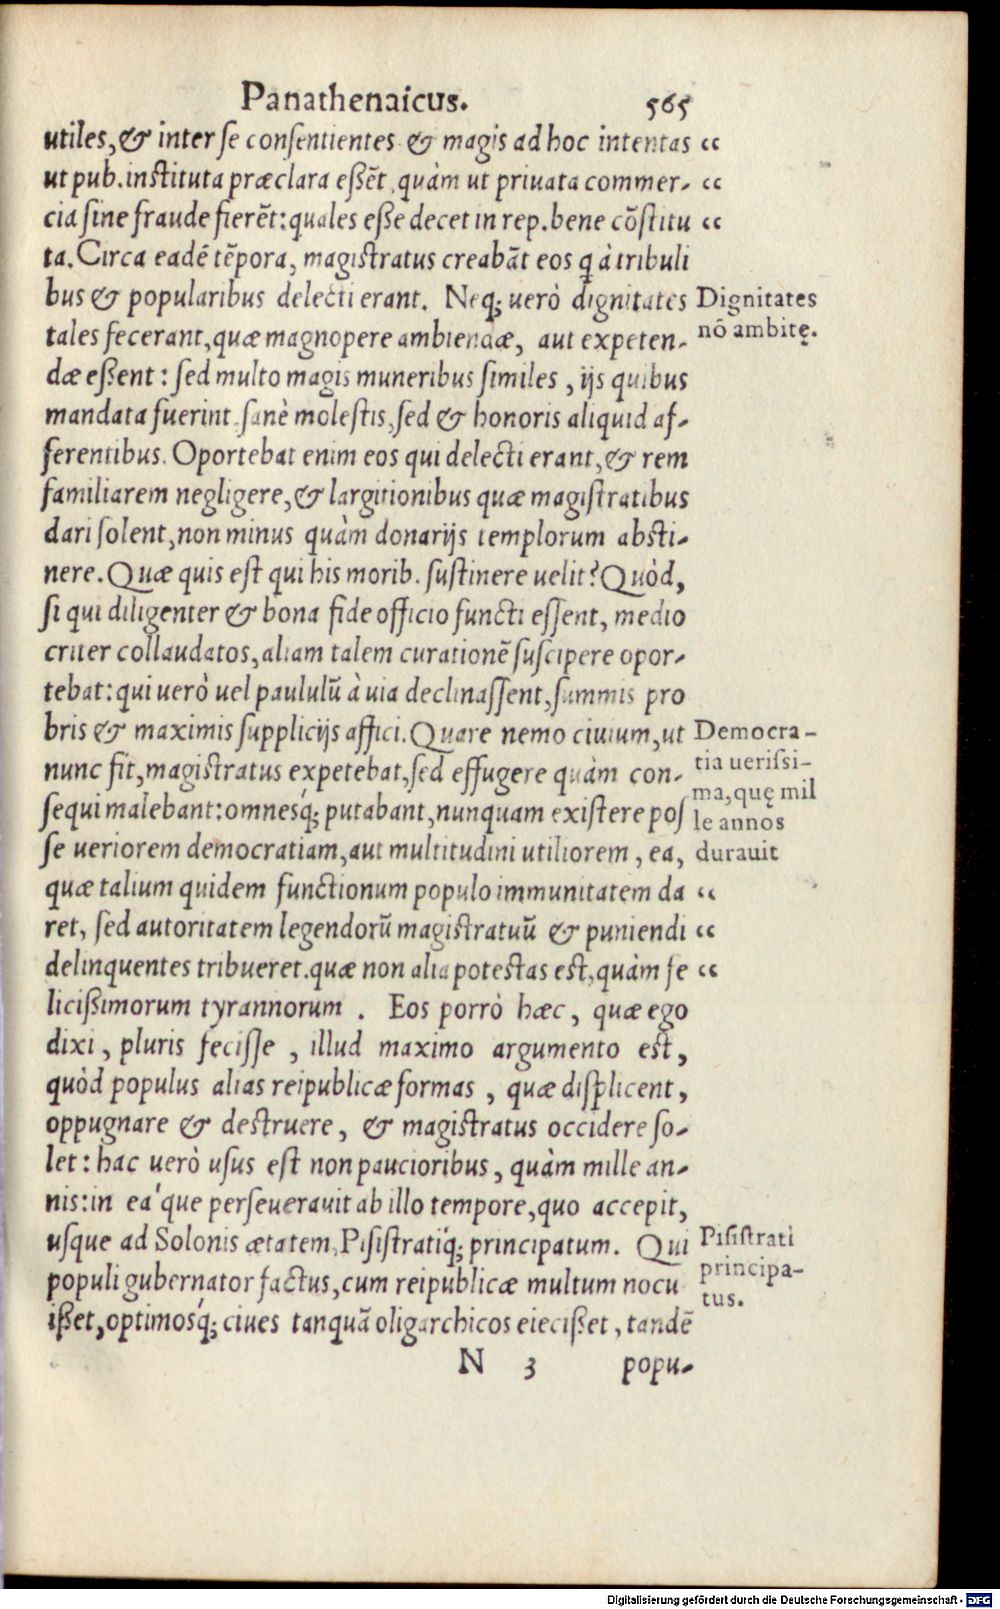 Panathenaicus. 565
utiles, & inter se consentientes & magis ad hoc intentas “
ut pub. instituta præclara eßēt, quàm ut priuata commer- “
cia sine fraude fierēt: quales eße decet in rep. bene cōstitu “
ta. Circa eadē tēpora, magistratus creabāt eos q̄ à tribuli
bus & popularibus delecti erant. Neq; uerò dignitates
Dignitates
tales fecerant, quæ magnopere ambiendæ, aut expeten-
nō ambitę.
dæ eßent: sed multo magis muneribus similes, ijs quibus
mandata fuerint sanè molestis, sed & honoris aliquid af-
ferentibus. Oportebat enim eos qui delecti erant, & rem
familiarem negligere, & largitionibus quæ magistratibus
dari solent, non minus quàm donarijs templorum absti-
nere. Quæ quis est qui his morib. sustinere uelit? Quòd,
si qui diligenter & bona fide officio functi essent, medio
criter collaudatos, aliam talem curationē suscipere opor-
tebat: qui uerò uel paululū à uia declinassent, summis pro
bris & maximis supplicijs affici. Quare nemo ciuium, ut
Democra-
nunc fit, magistratus expetebat, sed effugere quàm con-
tia uerissi-
sequi malebant: omnesq́; putabant, nunquam existere pos
ma, quę mil
le annos
se ueriorem democratiam, aut multitudini utiliorem, ea,
durauit
quæ talium quidem functionum populo immunitatem da “
ret, sed autoritatem legendorū magistratuū & puniendi “
delinquentes tribueret. quæ non alia potestas est, quàm fe “
licißimorum tyrannorum. Eos porrò hæc, quæ ego
dixi, pluris fecisse, illud maximo argumento est,
quòd populus alias reipublicæ formas, quæ displicent,
oppugnare & destruere, & magistratus occidere so-
let: hac uerò usus est non paucioribus, quàm mille an-
nis: in ea'que perseuerauit ab illo tempore, quo accepit,
usque ad Solonis ætatem, Pisistratiq́; principatum. Qui
Pisistrati
populi gubernator factus, cum reipublicæ multum nocu
principa-
tus.
ißet, optimosq́; ciues tanquā oligarchicos eiecißet, tandē
N 3 popu-
Digitalisierung gefördert durch die Deutsche Forschungsgemeinschaft - DFG